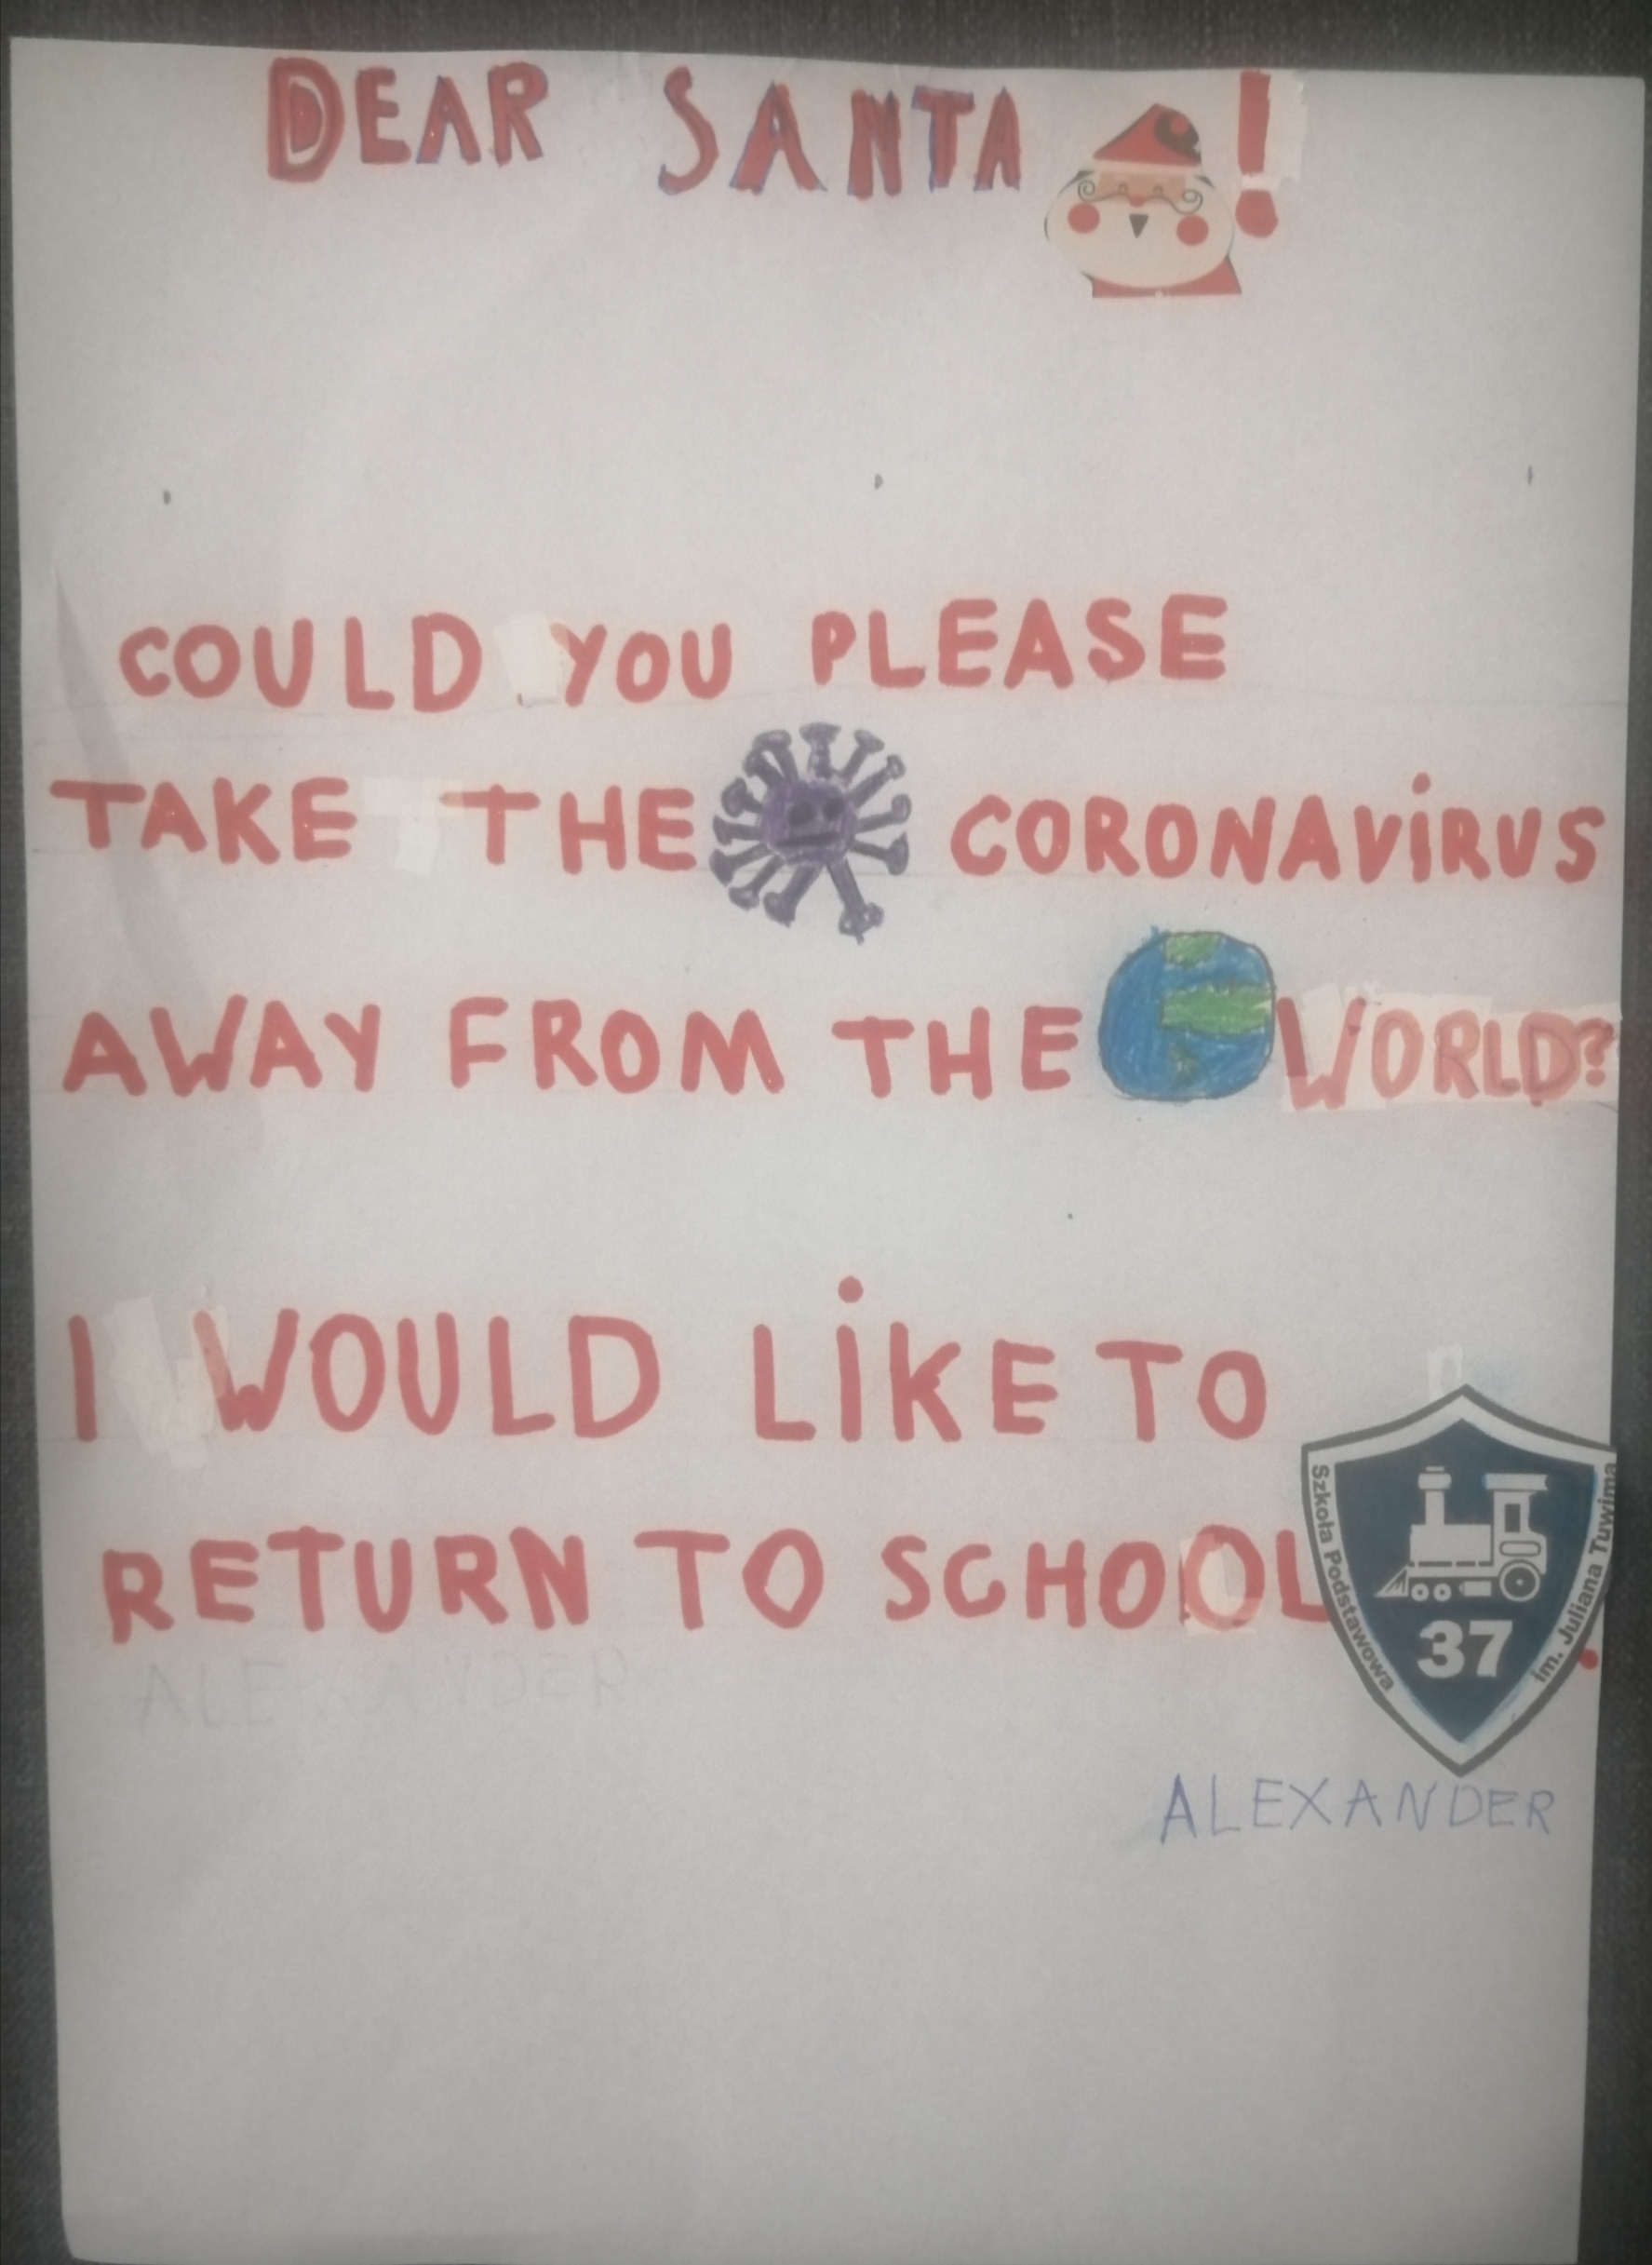 DEAR SANTA!
COULD YOU PLEASE
TAKE THE CORONAVIRUS
AWAY FROM THE WORLD?
I WOULD LIKE TO
RETURN TO SCHOOL.
Szkoła Podstawowa
im. Juliana Tuwima
37
ALEXANDER
ALEXANDER